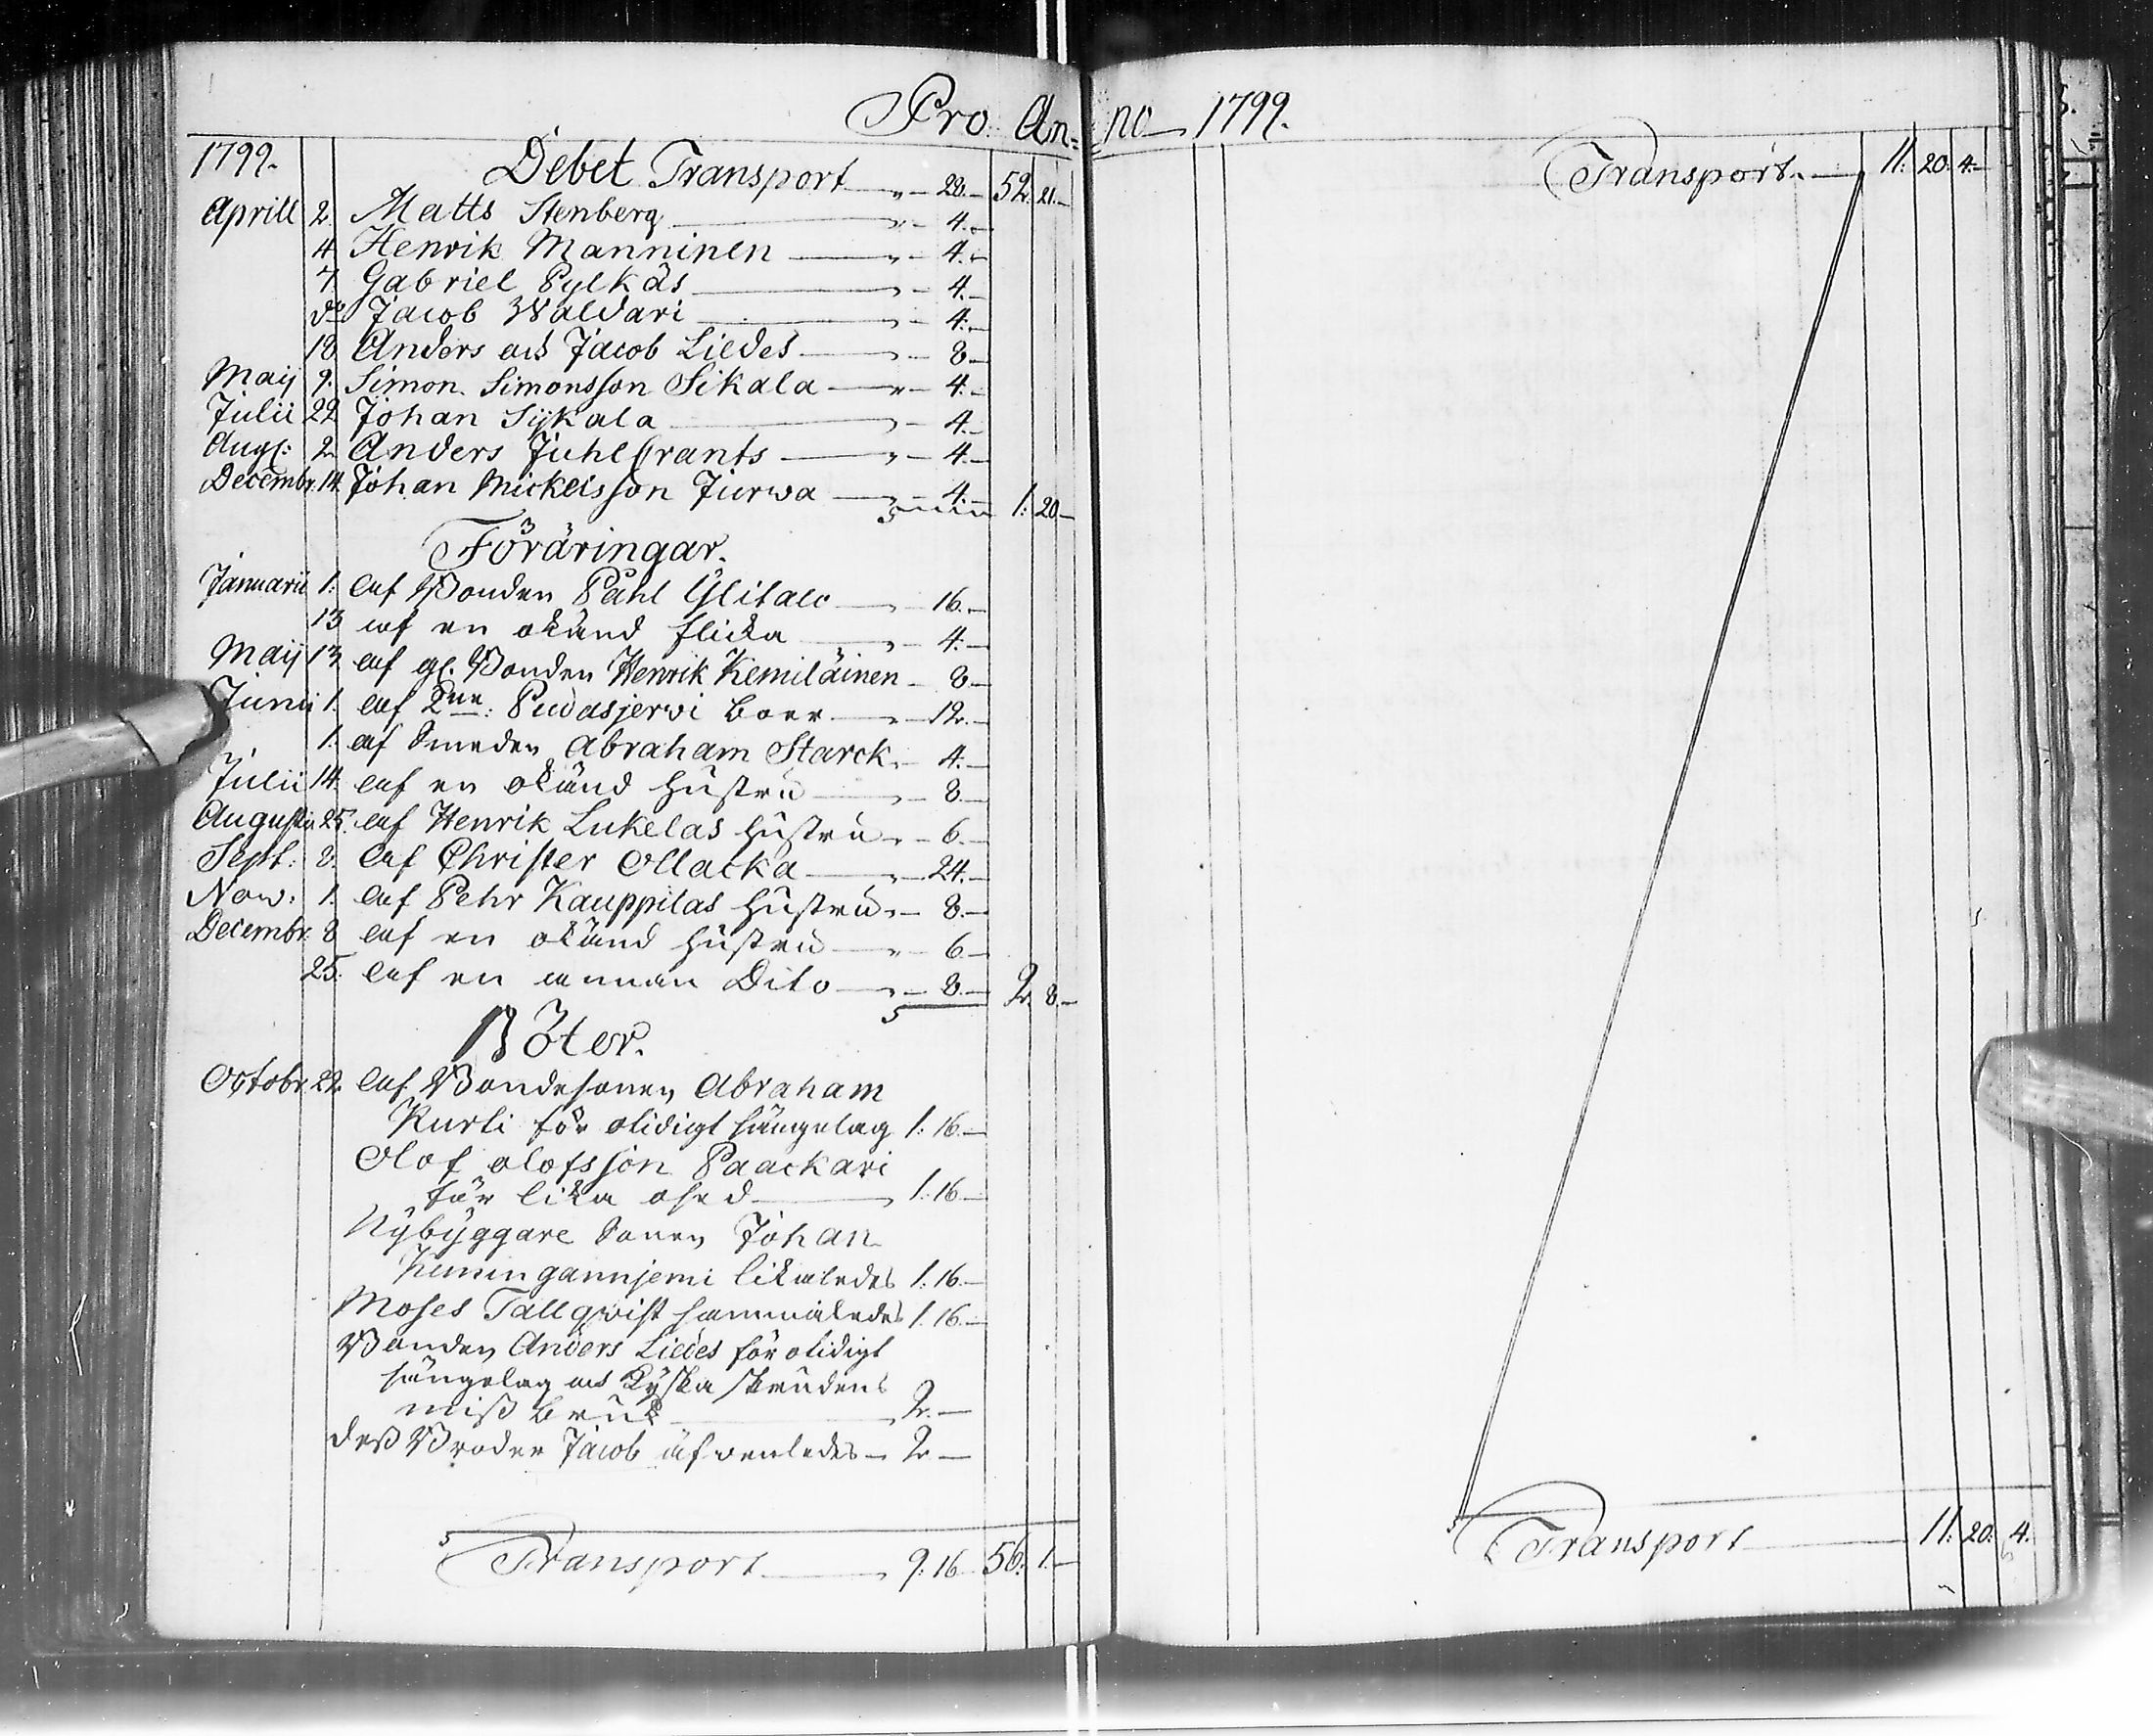 Pro An=
1799. Debet Transport " 28. 52. 21.
Aprill 2. Matts Stenberg " 4.
4. Henrik Manninen " 4.
7. Gabriel Pylkäs " 4.
do Jacob Waldari 4.
18. Anders och Jacob Liedes " 8.
Maij 9. Simon Simonsson Sikala " 4.
Julii 22. Johan Sykala " 4.
Aug: 2. Anders Juhlbrants " 4.
Decembr. 14. Johan Mickelsson Jurwa " 4. 1: 20.
Föräringar.
Januarii 1. af Bonden Påhl Ylitalo " 16.
13. af en okänd flicka " 4.
Maij 13. af gl. Bonden Henrik Kemiläinen 8.
Junii 1. af Pudasjerwi boer " 12.
1. af Smeden Abraham Starck 4.
Julii 14. af en okänd hustru " 8.
Augusti 25. af Henrik Lukelas hustru " 6.
Sept: 8. af Christer Ollacka " 24.
Nov: 1. af Pehr Kauppilas hustru " 8.
Decembr. 8. af en okänd hustru " 6.
25. af en annan Dito " 8. 2. 8.
Böter.
Octobr. 22. af Bondesonen Abraham
Kurti för otidigt sängelag 1: 16.
Olof Olofsson Paackari
för lika osed 1: 16.
Nybyggare Sonen Johan
likaledes 1: 16.
Moses Tallqvist sammaledes 1: 16.
Bonden Anders Liedes för otidigt
sängelag och kyska skrudens
missbruk 2.
dess Broder Jacob äfwenledes 2.
Transport 9: 16. 56: 1.
no 1799.
Transport. 11: 20: 4.
Transport 11: 20: 4.